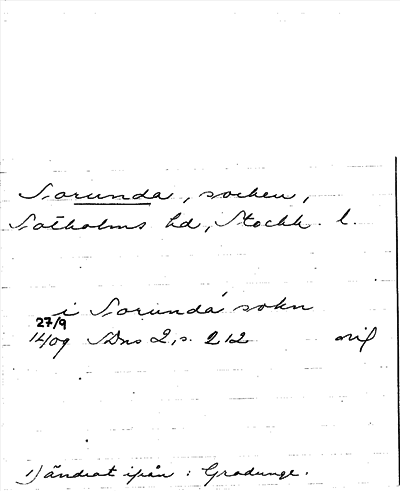 Sorunda, socken,
Sotholms hd, Stockh. l.
i Sorunda¹ sokn
27/9
1409 SDns 2, s. 212 orig
1) ändrat ifrån : Gradunge.